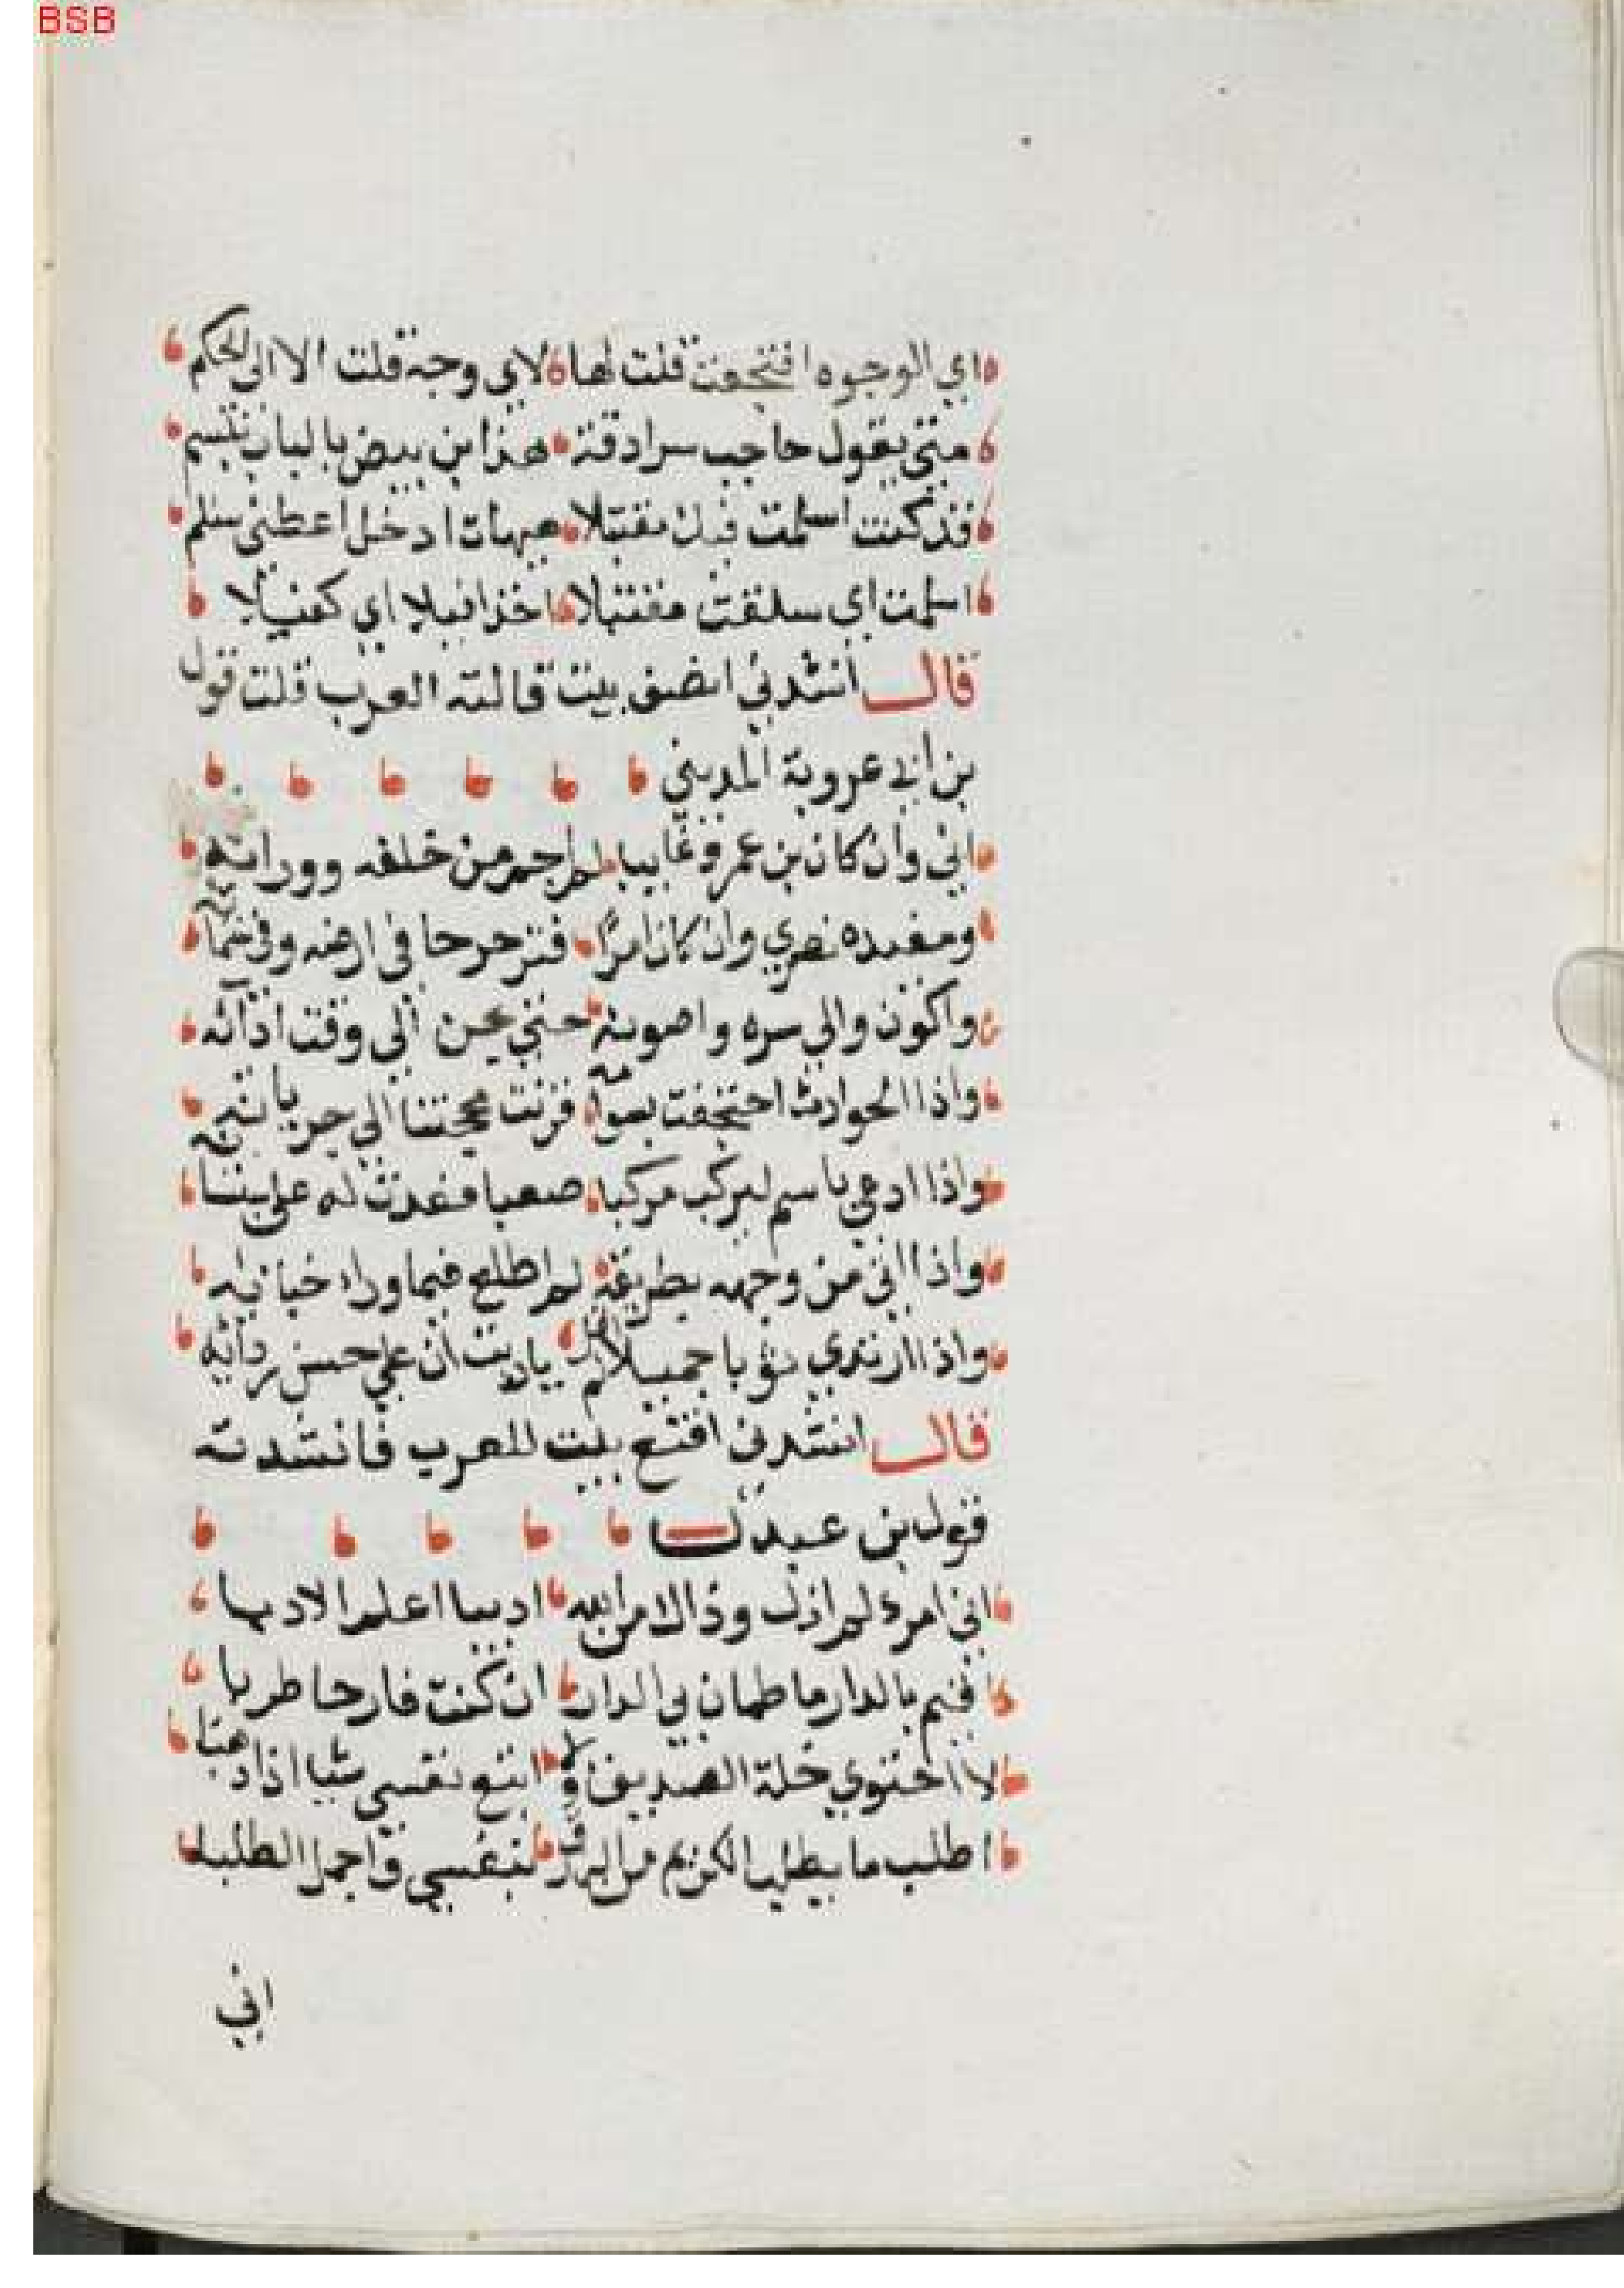 BSB
اي الوجوه افتجعت قلت لها لاى وجه قلت الا الى الحكم
متى يقول حاجب سرادقة هذا ابن بيض بالباب تبتسم
قد كنت اسلمت قبل مقتبلا هيهات ادخل اعطنى سلم
اسلمت اى سلفت مقتبلا اخذا قبلا اي كفيلا
قال انشدني انصف بيت قالته العرب قلت قول
بن ابي عروبة المديني
اني وان كان بن عمرو غايبا لمراجم من خلفه وورائه
ومفيده نصري وان كان امرا متزحزحا في ارضه وفي سمائه
واكون والي سره واصونه حتي يحن الى وقت ادائه
واذا الحوادث اجتحفت بسوامه قرنت صحيحتنا الى جربائه
واذا ادعي باسم ليركب مركبا صعبا قعدت له على سيسائه
واذا اتى من وجهه بطريقة لم اطلع فيما وراء خبائه
واذا ارتدي ثوبا جميلا لم اقل ياليت ان علي حسن ردائه
قال انشدنى اقنع بيت للعرب فانشدته
قول بن عبدل
انى امرء لم ازل وذالك من الله اديبا اعلم الادبا
اقيم بالدار ما اطمان بي الدار ان كنت نازحا طربا
لا احتوي خلة الصديق ولا اتبع نفسي شيا اذا ذهبا
اطلب ما يطلب الكريم من الرزق لنفسي واجمل الطلبا
اني